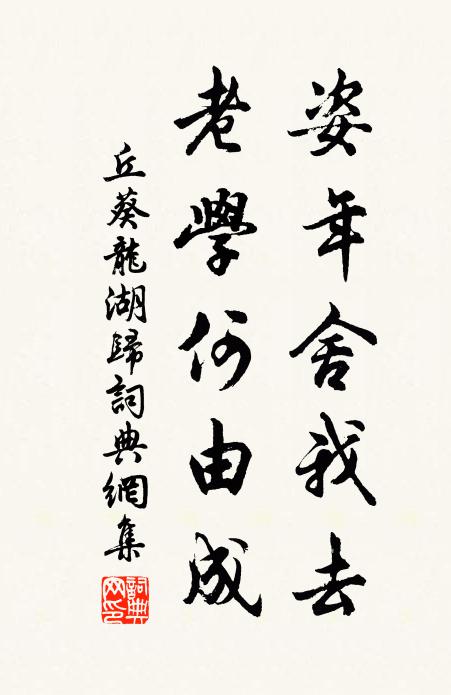 姿年舍我去
老學何由成
丘葵龍湖歸詞典網集
詞典網印